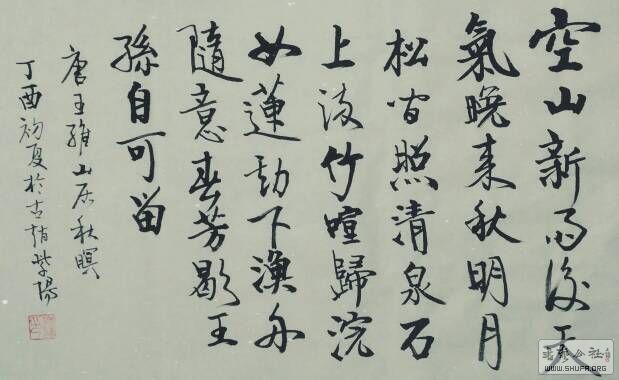 空山新雨後天
氣晚来秋明月
松間照清泉石
上流竹喧歸浣
女蓮動下漁舟
隨意春芳歇王
孫自可留
唐王維山居秋暝
丁酉初夏於古趙紫陽
書法公社
WWW.SHUFA.ORG